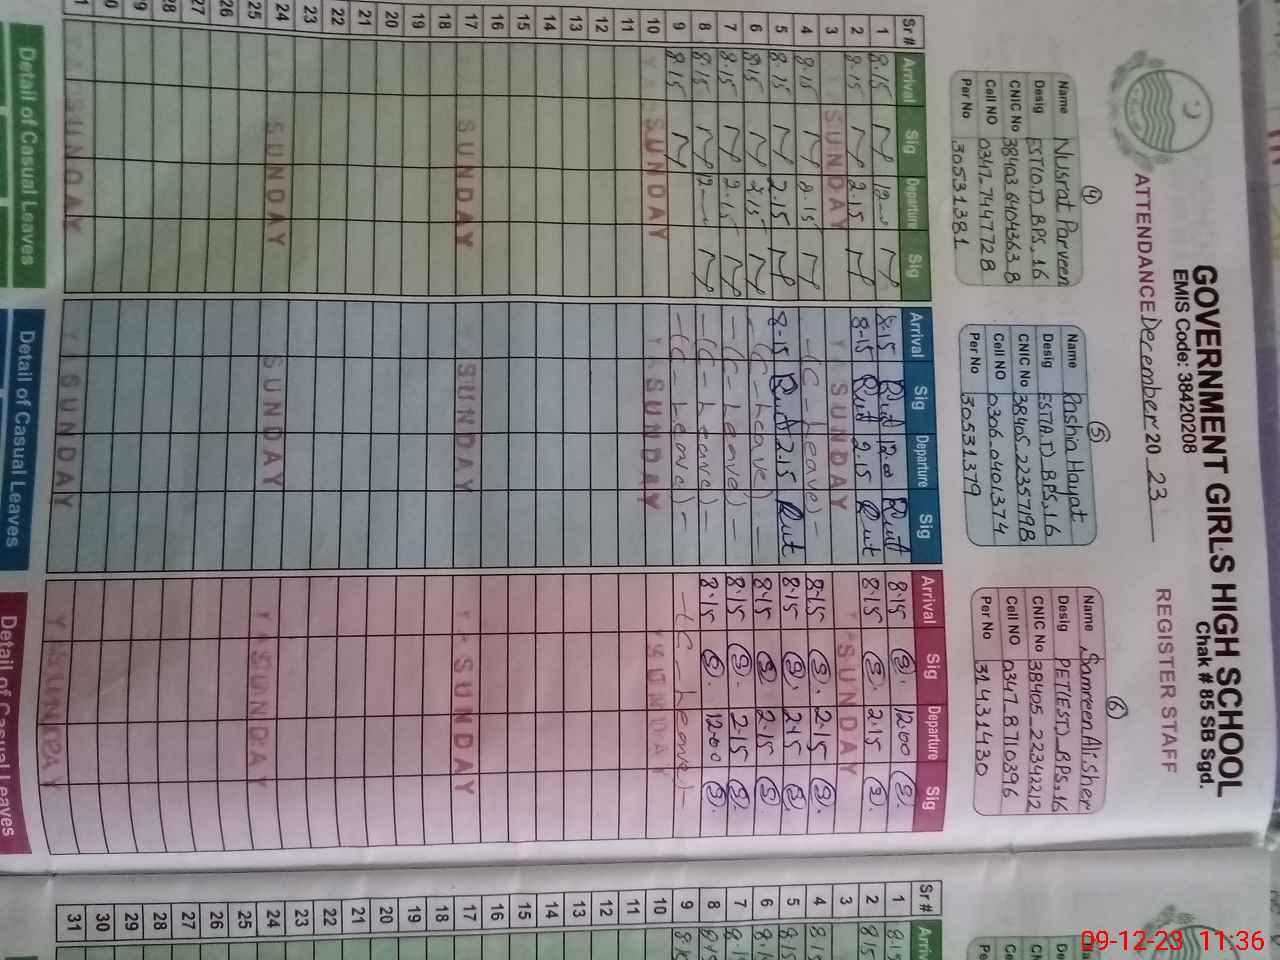 GOVERNMENT GIRLS HIGH SCHOOL
EMIS Code: 38420208
Chak # 85 SB Sgd.
ATTENDANCE December 20 23
REGISTER STAFF
④
Name Nusrat Parveen
Desig EST(O.T) BPS.16
CNIC No 38403 6404363 8
Cell NO 0347-7447728
Per No 30531381
⑤
Name Rashia Hayat
Desig EST(A.T) BPS.16
CNIC No 38405-2235719 8
Cell NO 0306-0401374
Per No 30531379
⑥
Name Samreen Ali sher
Desig PET(EST) BPS.16
CNIC No 38405-22342212
Cell NO 0347-8710396
Per No 31431430
Sr# Arrival Sig Departure Sig Arrival Sig Departure Sig Arrival Sig Departure Sig
1 8.15 12 8.15 Rut 12.00 Rut 8.15 S. 12.00 S.
2 8.15 2.15 8.15 Rut 2.15 Rut 8.15 S. 2.15 S.
3 SUNDAY SUNDAY SUNDAY
4 8.15 2.15 -(C-Leave)- 8.15 S. 2.15 S.
5 8.15 2.15 8.15 Rut 2.15 Rut 8.15 S. 2.15 S.
6 8.15 2.15 -(C-Leave)- 8.15 S. 2.15 S.
7 8.15 2.15 -(C-Leave)- 8.15 S. 2.15 S.
8 8.15 12 -(C-Leave)- 8.15 S. 12.00 S.
9 8.15 -(C-Leave)- -(C-Leave)-
10 SUNDAY SUNDAY SUNDAY
11
12
13
14
15
16
17 SUNDAY SUNDAY SUNDAY
18
19
20
21
22
23
24 SUNDAY SUNDAY SUNDAY
25
26
27
28
29
30
31 SUNDAY SUNDAY SUNDAY
Detail of Casual Leaves
Detail of Casual Leaves
Detail of Casual Leaves
Sr#
1 8.15
2 8.15
3
4
5 8.15
6
7
8
9 8.15
10
11
12
13
14
15
16
17
18
19
20
21
22
23
24
25
26
27
28
29
30
31
09-12-23 11:36